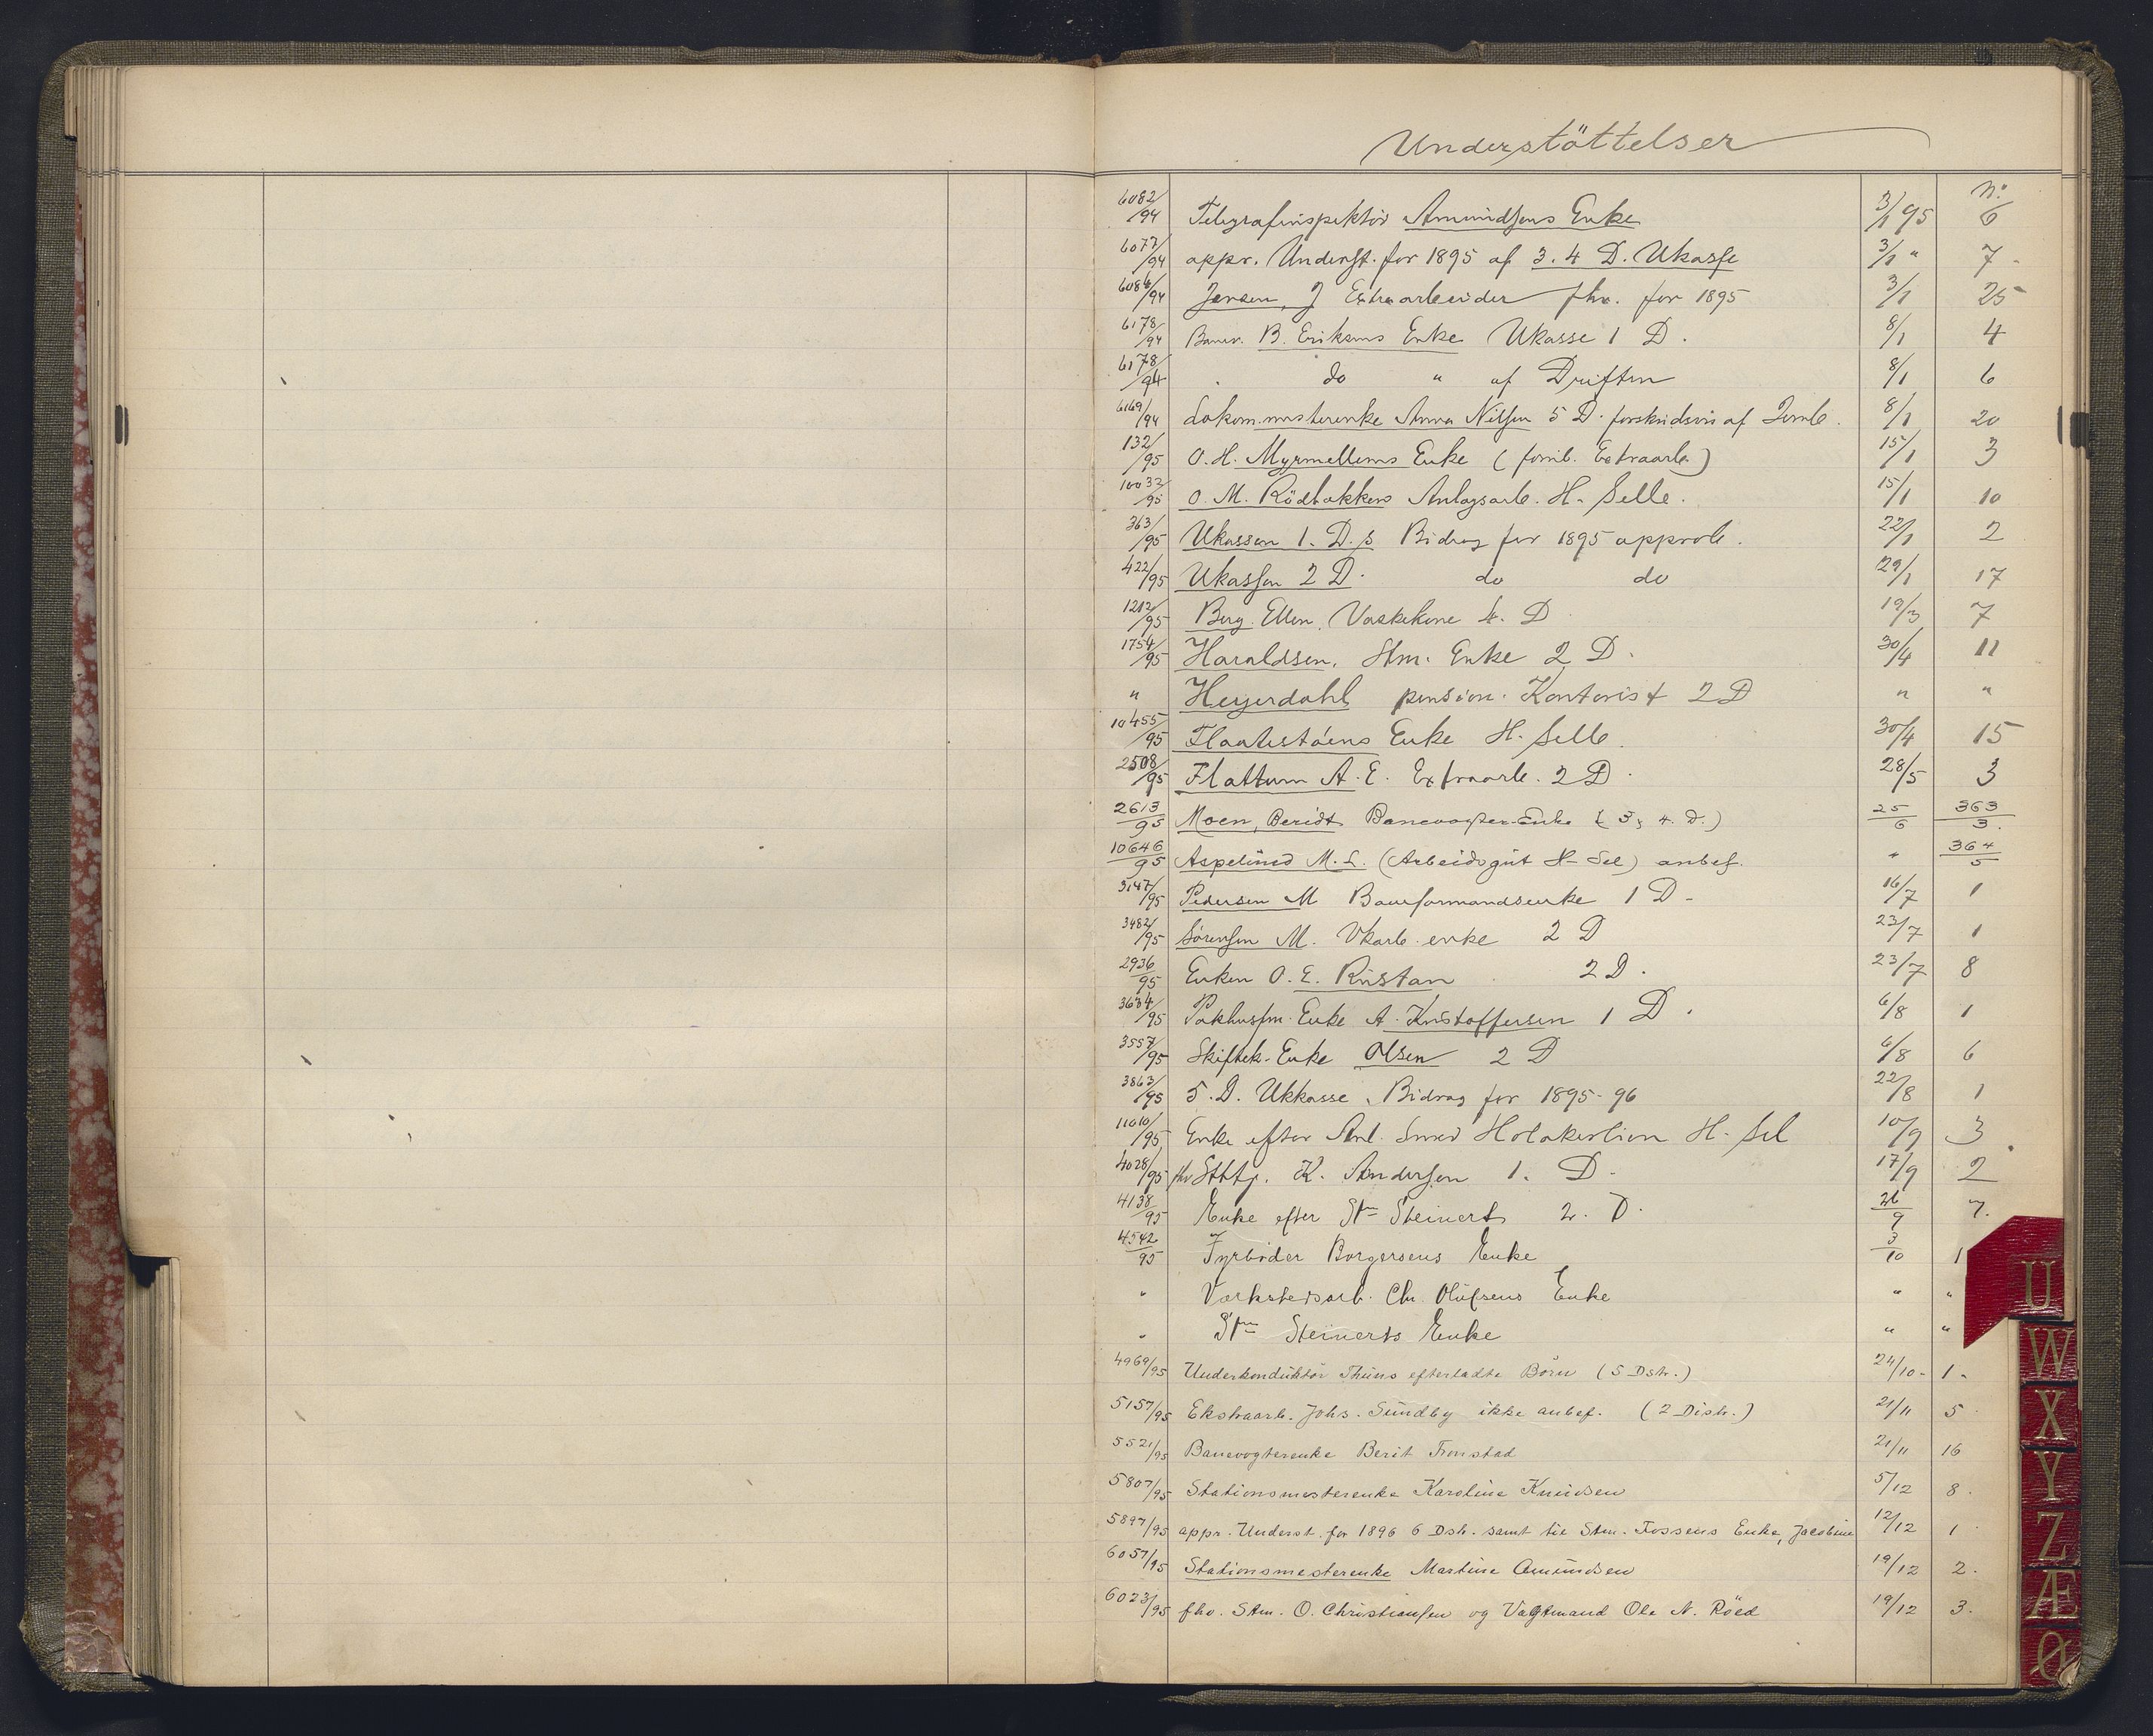 Understöttelser
No.
6082/94 Telegrafinspektör Amundsens Enke 3/1 95 6
6077/94 appr. Underst. for 1895 af 3. 4 D. Ukasse 3/1 " 7
6086/94 Jensen, J Extraarbeider fhv. for 1895 3/1 25
6178/94 Banev. B. Eriksens Enke Ukasse 1 D. 8/1 4
6178/94 do " af Driften 8/1 6
6169/94 Lokom.mesterenke Anna Nilsen 5 D. forskudsvis af 8/1 20
132/95 O. H. Myrmellems Enke ( Extraarb.) 15/1 3
10032/95 O. M. Rödbakkens Anlagsarb. H- Selb. 15/1 10
363/95 Ukassen 1. D.s Bidrag for 1895 approb. 22/1 2
422/95 Ukassen 2 D. do do 29/1 17
1212/95 Berg. Ellen, Vaskekone 4. D 19/3 7
1754/95 Haraldsen, Stm. Enke 2 D. 30/4 11
" Heyerdahl pension. Kontorist 2 D " "
10455/95 Flaatestöens Enke H. Selb 30/4 15
2508/95 Flattum A. E. Extraarb. 2 D. 28/5 3
2613/95 Moen, Beridt Banevogter-Enke ( 3 & 4. D.) 25/6 363/3.
10646/95 Aspelund M. L. (Arbeidsgut H- Sel) anbef. " 364/5
3147/95 Pedersen M Baneformandsenke 1 D - 16/7 1
3482/95 Sörensen M. Vkarb. enke 2 D 23/7 1
2936/95 Enken O. E. Rustan 2 D. 23/7 8
3634/95 Pakhusfm. Enke A. Kristoffersen 1 D. 6/8 1
3557/95 Skiftek. Enke Olsen 2 D 6/8 6
3863/95 5. D. Ukkasse, Bidrag for 1895-96 22/8 1
11010/95 Enke efter Anl. Smed Holakerlien H- Sel 10/9 3
4028/95 fhv Stbtj. K. Andersen 1. D. 17/9 2
4138/95 Enke efter Stm Steinert 2. D. 26/9 7.
4542/95 Fyrböder Borgersens Enke 3/10 1
" Værkstedsarb. Chr. Olufsens Enke " "
" Stm Steinerts Enke " "
4969/95 Underkonduktör Thunes efterladte Börn (5 Dstr.) 24/10 - 1 -
5157/95 Ekstraarb. Johs. Sundby ikke anbef. (2 Distr.) 21/11 5
5521/95 Banevogterenke Berit Tronstad 21/11 16
5807/95 Stationsmesterenke Karoline Knudsen 5/12 8.
5897/95 appr. Underst. for 1896 6 Dstr. samt til Stm. Fossens Enke, Jacobine 12/12 1
6057/95 Stationsmesterenke Martine Amundsen 19/12 2.
6023/95 fhv. Stm. O. Christiansen og Vagtmand Ole N. Röed 19/12 3.
U
W
X
Y
Z
Æ
Ø